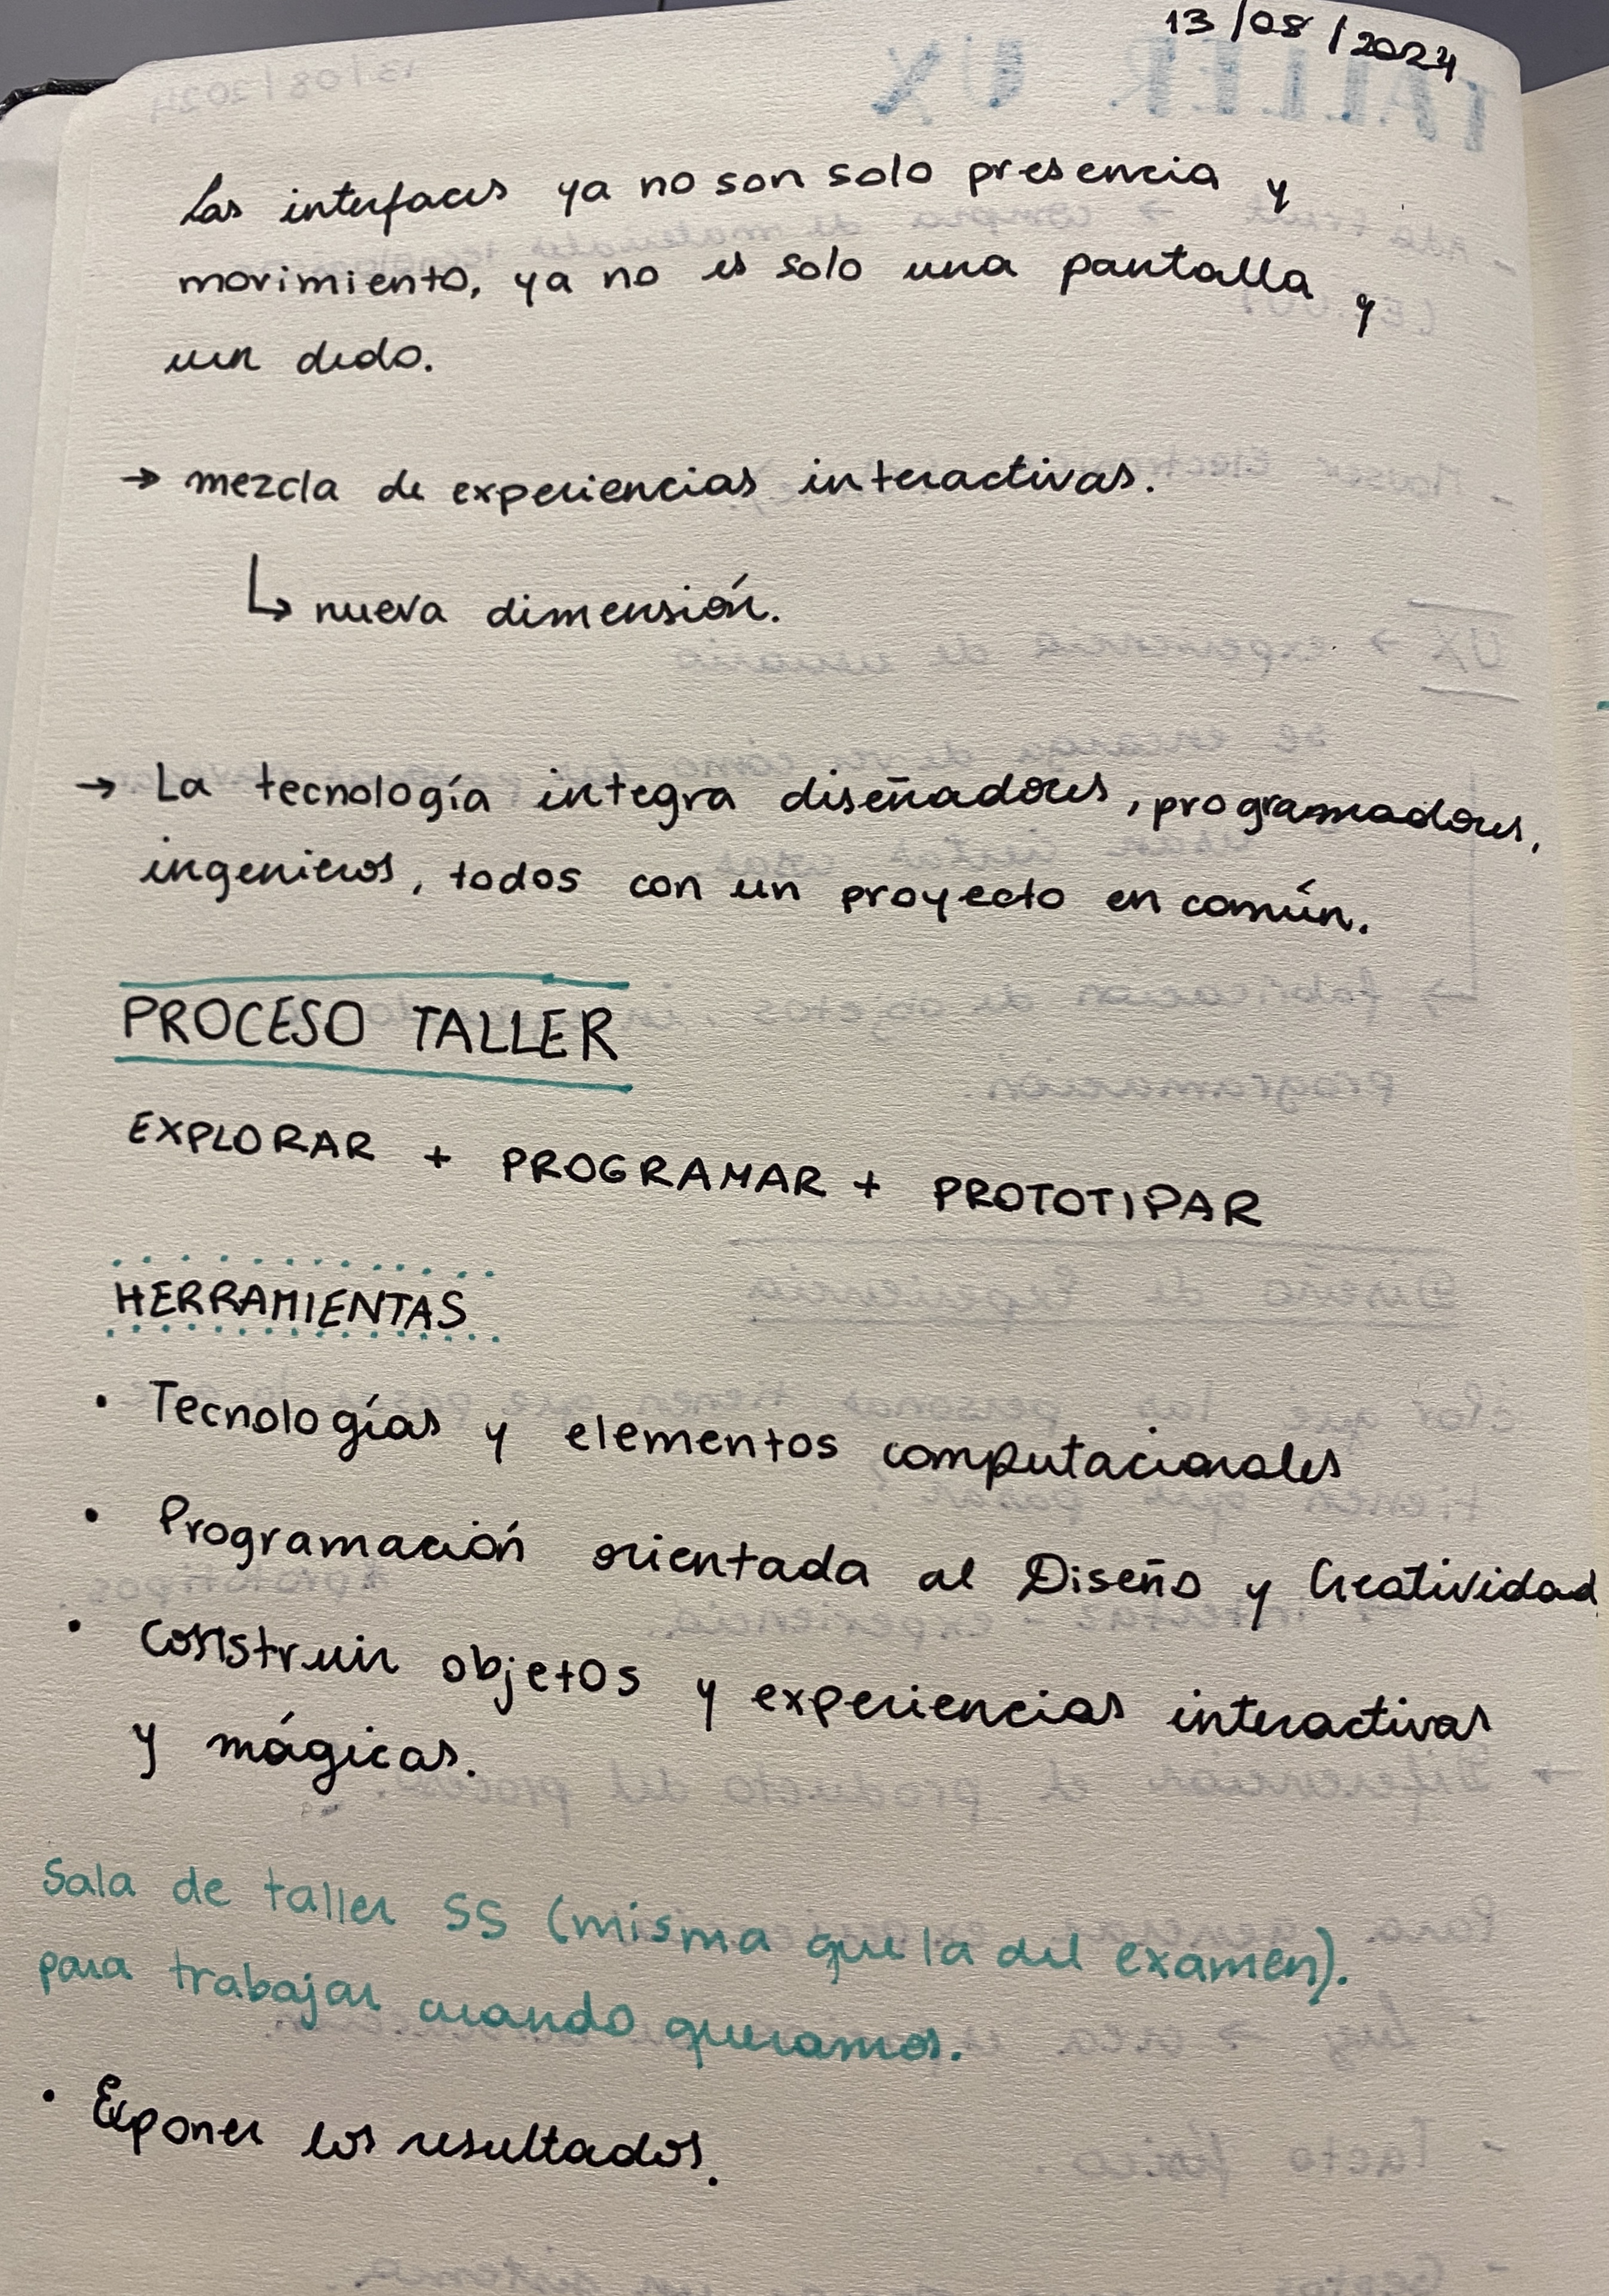 13/08/2024
Las interfaces ya no son solo presencia y
movimiento, ya no es solo una pantalla y
un dedo.
→ mezcla de experiencias interactivas.
↳ nueva dimensión.
→ La tecnología integra diseñadores, programadores,
ingenieros, todos con un proyecto en común.
PROCESO TALLER
EXPLORAR + PROGRAMAR + PROTOTIPAR
HERRAMIENTAS
• Tecnologías y elementos computacionales
• Programación orientada al Diseño y Creatividad
• Construir objetos y experiencias interactivas
y mágicas.
Sala de taller SS (misma que la del examen).
para trabajar cuando queramos.
• Exponer los resultados.